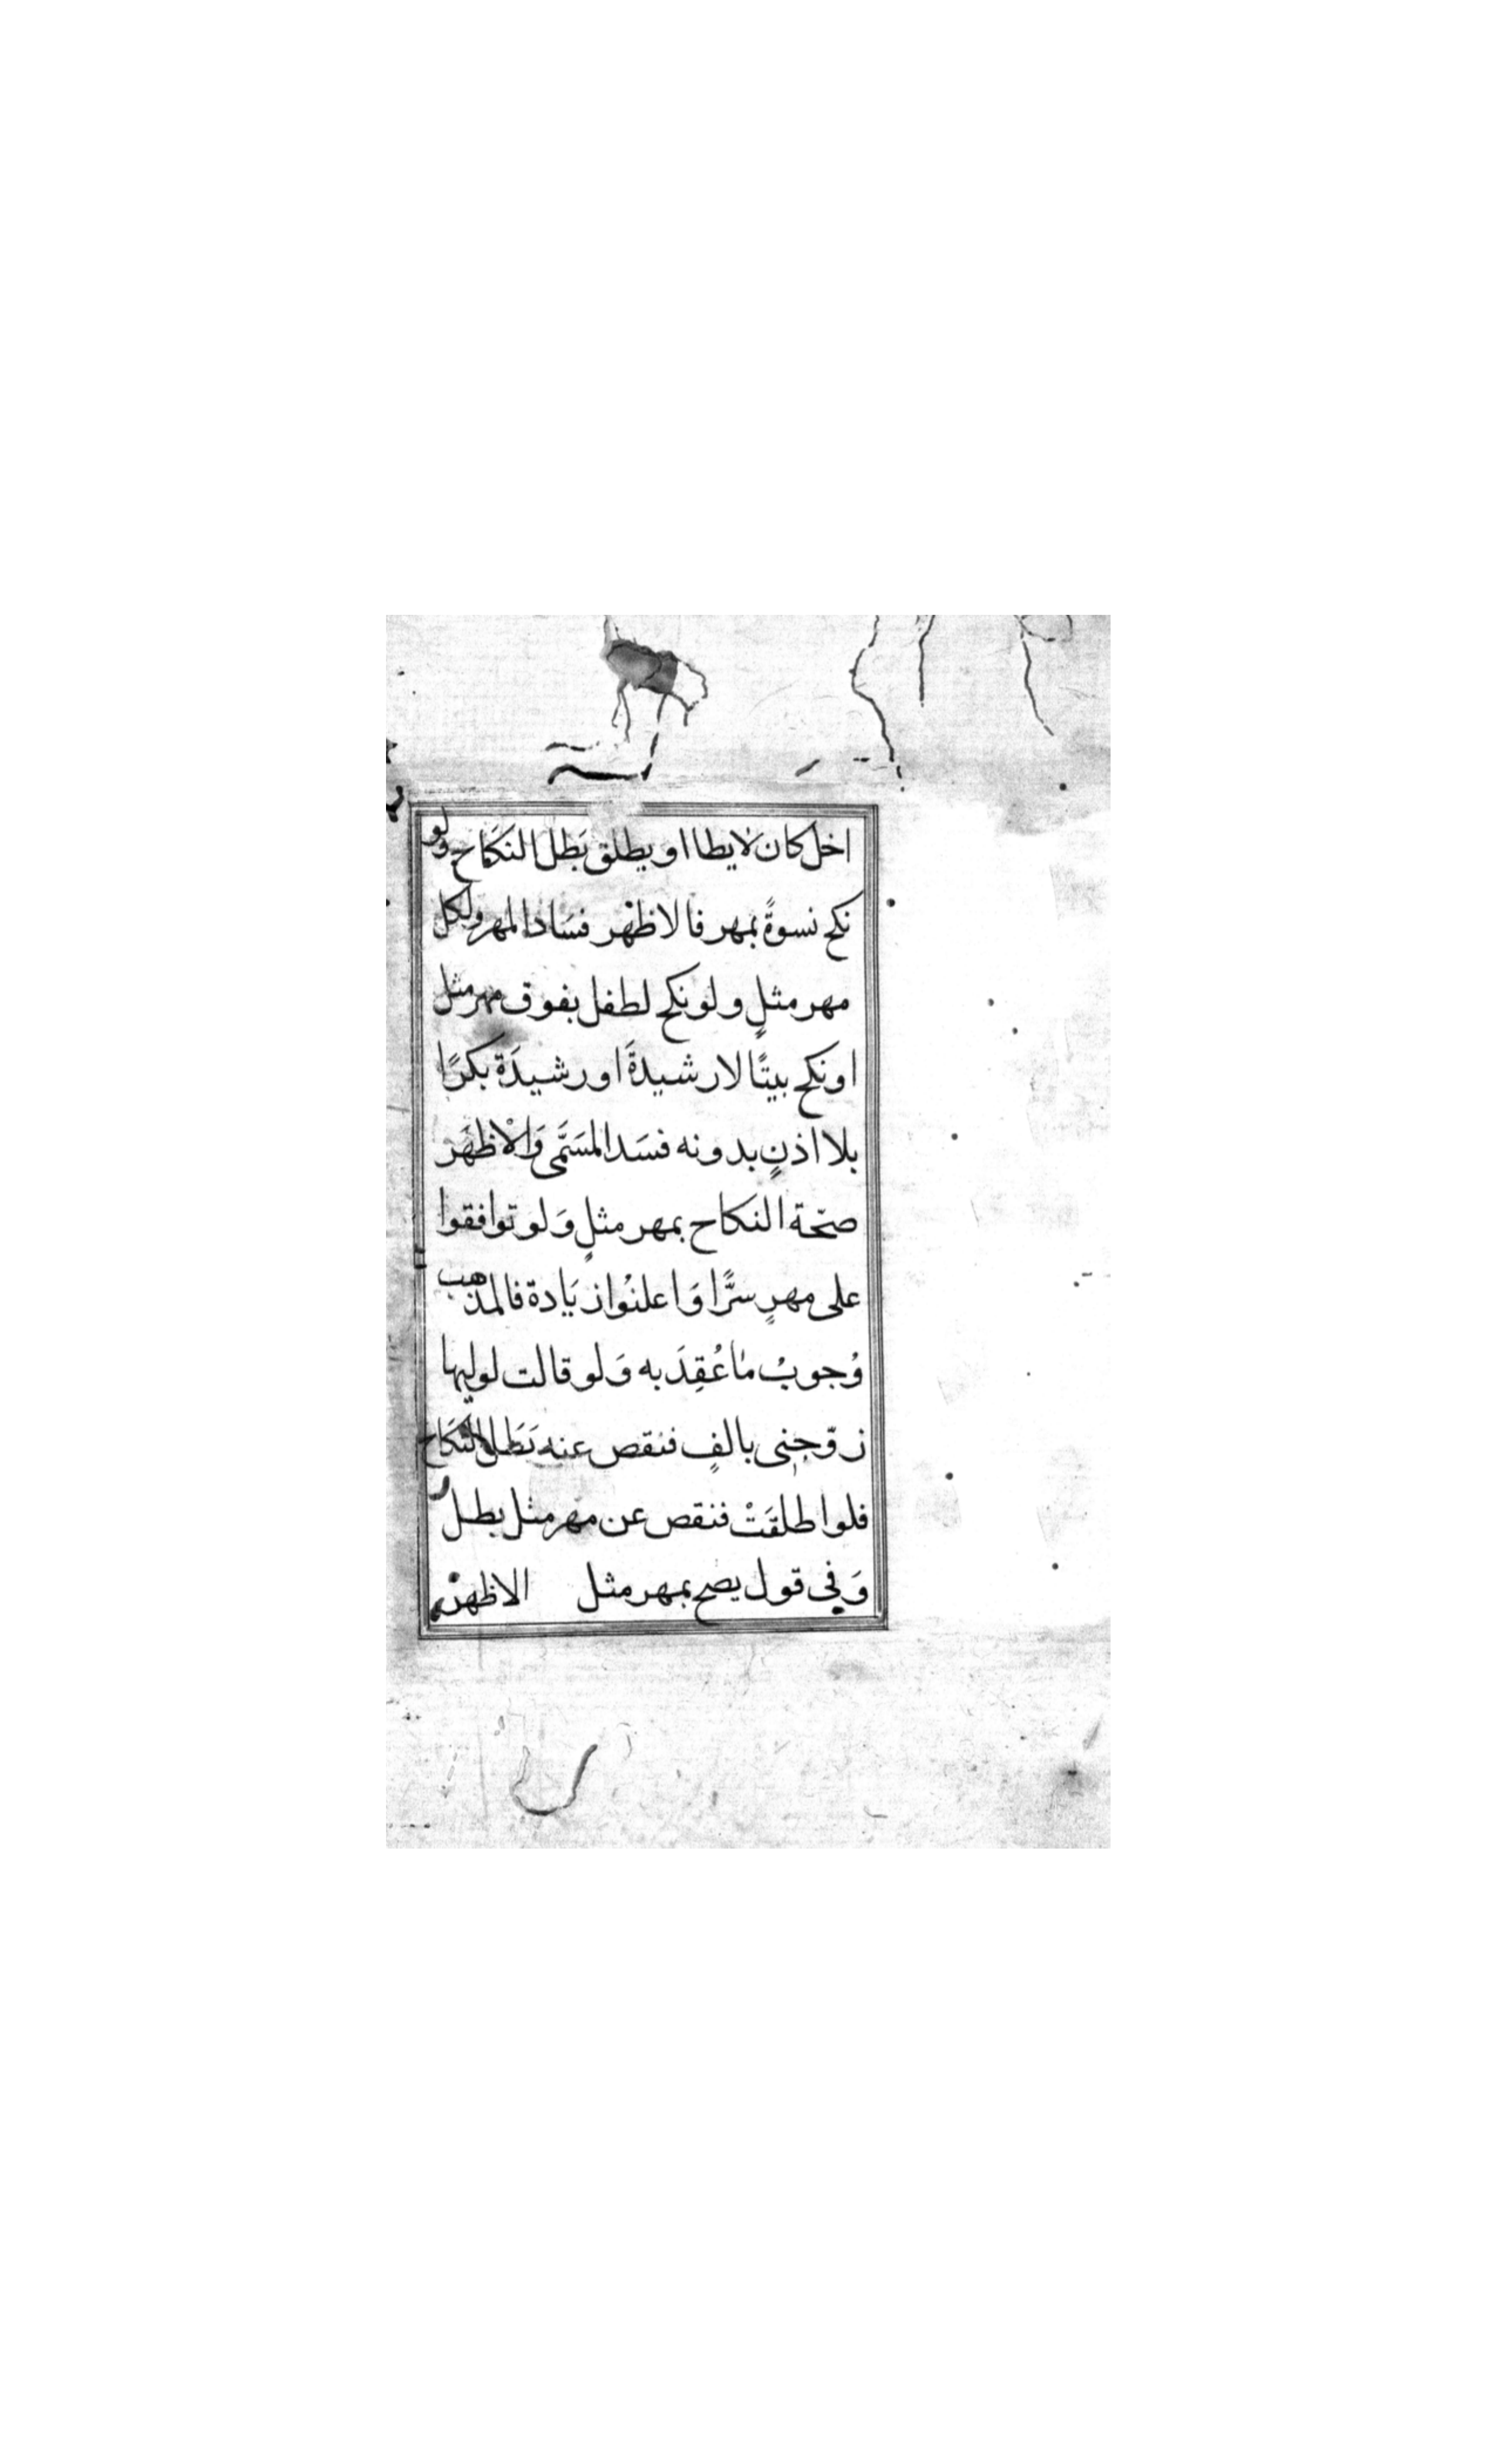 اخل كان لا يطا او يطلق بَطل النكَاح ولو
نكح نسوةً بمهر فالاظهر فسَاد المهر ولكل
مهر مثلٍ ولو نكح لطفل بفوق مهر مثل
او نكح بيتًا لا رشيدةَ او رشيدَة بكرًا
بلا اذنٍ بدونه فسَد المسَمَّى وَالاْظهَر
صحّة النكاح بمهر مثلٍ وَلو توافقوا
على مهرٍ سرًّا وَاعلنُوا زيَادة فالمذهب
وُجوبُ مَا عُقِدَ به وَلو قالت لوليها
زوّجنِى بالفٍ فنقص عنه بَطَل النكَاح
فلو اطلقَتْ فنقص عن مهر مثل بطل
وَفِى قول يصح بمهر مثل الاظهر